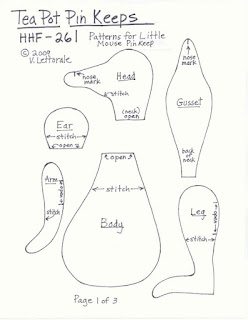 Tea Pot Pin Keeps
HHF-261
Patterns for Little
Mouse Pin Keep
© 2009
V. Lettorale
nose
mark
Head
stitch
(neck)
open
nose
mark
Gusset
back of
neck
Ear
stitch
open
open
stitch
Body
Arm
open
stitch
Leg
stitch
open
Page 1 of 3